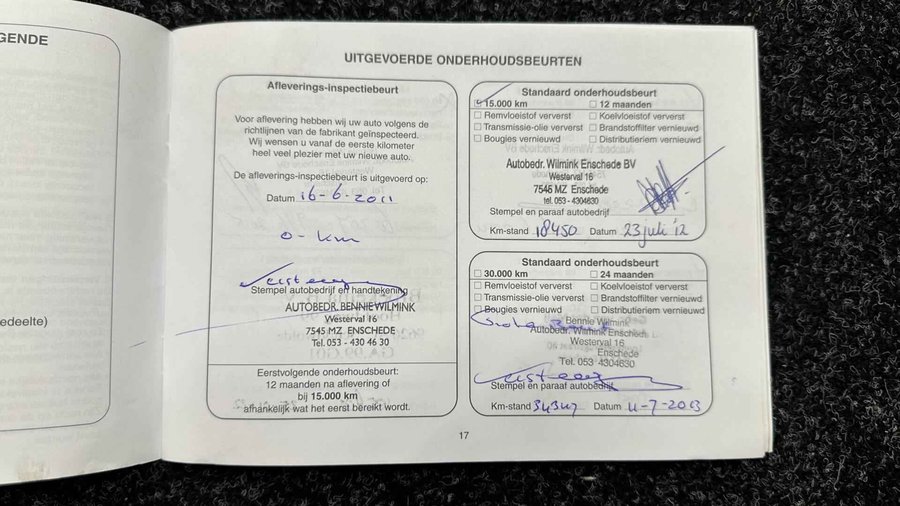 GENDE
edeelte)
UITGEVOERDE ONDERHOUDSBEURTEN
Afleverings-inspectiebeurt
Voor aflevering hebben wij uw auto volgens de
richtlijnen van de fabrikant geïnspecteerd.
Wij wensen u vanaf de eerste kilometer
heel veel plezier met uw nieuwe auto.
De afleverings-inspectiebeurt is uitgevoerd op:
Datum 16-6-2011
0- km
Stempel autobedrijf en handtekening
AUTOBEDR. BENNIE WILMINK
Westerval 16
7545 MZ ENSCHEDE
Tel. 053 - 430 46 30
Eerstvolgende onderhoudsbeurt:
12 maanden na aflevering of
bij 15.000 km
afhankelijk wat het eerst bereikt wordt.
Standaard onderhoudsbeurt
15.000 km 12 maanden
Remvloeistof ververst Koelvloeistof ververst
Transmissie-olie ververst Brandstoffilter vernieuwd
Bougies vernieuwd Distributieriem vernieuwd
Autobedr. Wilmink Enschede BV
Westerval 16
7545 MZ Enschede
tel. 053 - 4304630
Stempel en paraaf autobedrijf
Km-stand 18450 Datum 23 juli '12
Standaard onderhoudsbeurt
30.000 km 24 maanden
Remvloeistof ververst Koelvloeistof ververst
Transmissie-olie ververst Brandstoffilter vernieuwd
Bougies vernieuwd Distributieriem vernieuwd
Bennie Wilmink
Autobedr. Wilmink Enschede
Westerval 16
Enschede
Tel. 053 4304630
Stempel en paraaf autobedrijf
Km-stand 34347 Datum 11-7-2013
17